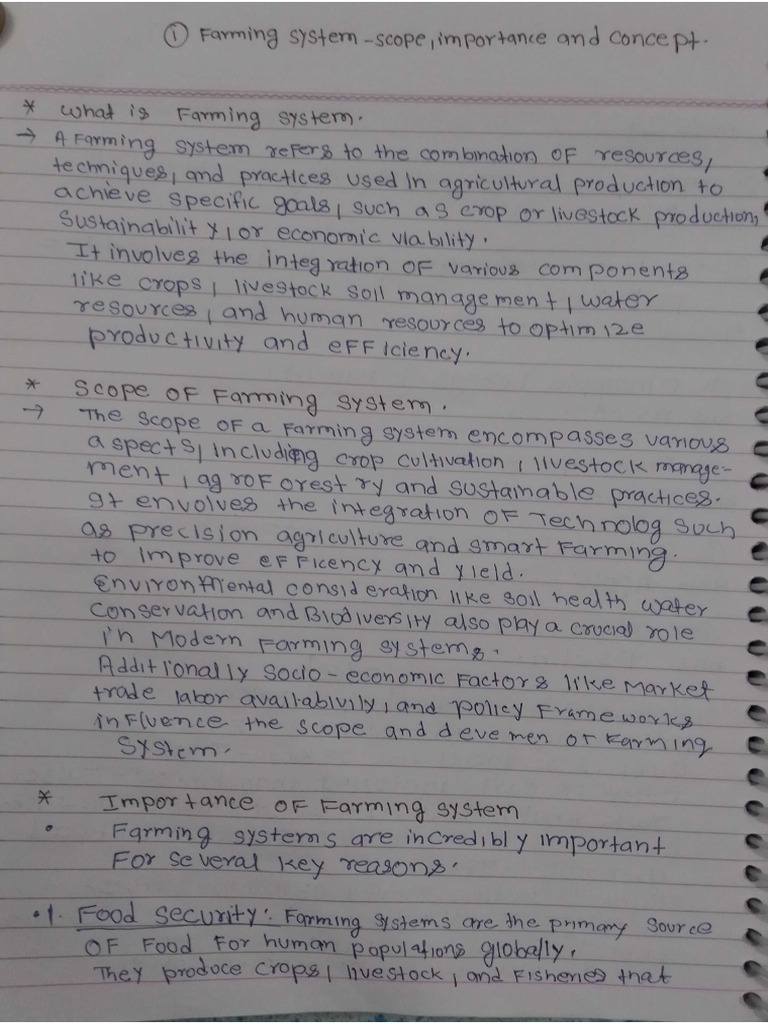 ① Farming system - scope, importance and concept.
* What is Farming system.
→ A Farming system refers to the combination of resources,
techniques, and practices used in agricultural production to
achieve specific goals, such as crop or livestock production,
Sustainability, or economic viability.
It involves the integration of various components
like crops, livestock soil management, water
resources, and human resources to optimize
productivity and efficiency.
* Scope of Farming system.
→ The scope of a Farming system encompasses various
aspects, including crop cultivation, livestock manage-
ment, agroforestry and sustainable practices.
It envolves the integration of Technolog such
as precision agriculture and smart farming.
to improve efficency and yield.
Environmental consideration like soil health water
conservation and Biodiversity also play a crucial role
in Modern Farming systems.
Additionally socio-economic factors like Market
trade labor availabivily, and policy frameworks
influence the scope and devemen of Farming
System.
* Importance of Farming system
• Farming systems are incredibly important
For several key reasons.
•1. Food security: Farming systems are the primary source
of food for human populations globally.
They produce crops, livestock, and fisheries that